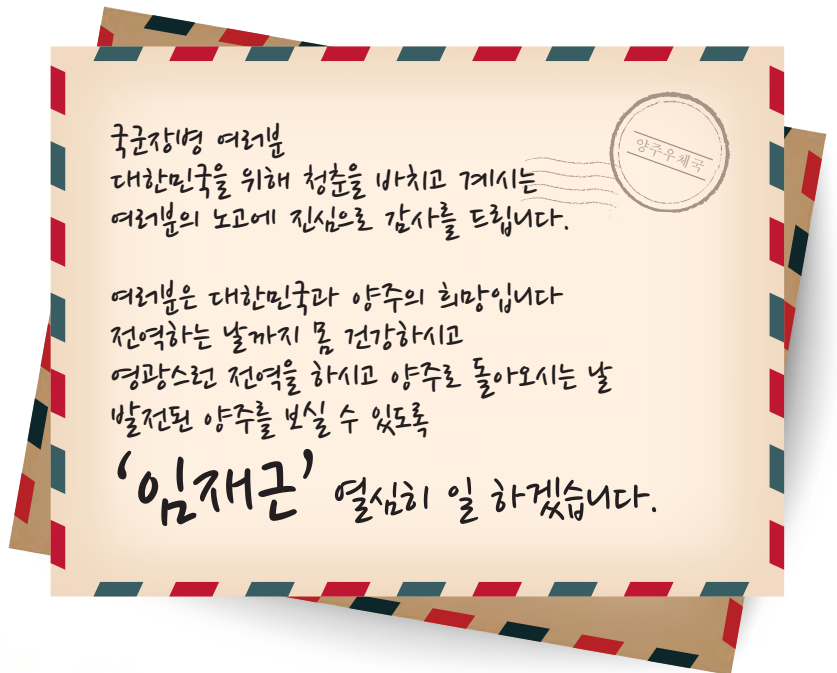 양주우체국
국군장병 여러분
대한민국을 위해 청춘을 바치고 계시는
여러분의 노고에 진심으로 감사를 드립니다.
여러분은 대한민국과 양주의 희망입니다
전역하는 날까지 몸 건강하시고
영광스런 전역을 하시고 양주로 돌아오시는 날
발전된 양주를 보실 수 있도록
‘임재근’ 열심히 일 하겠습니다.